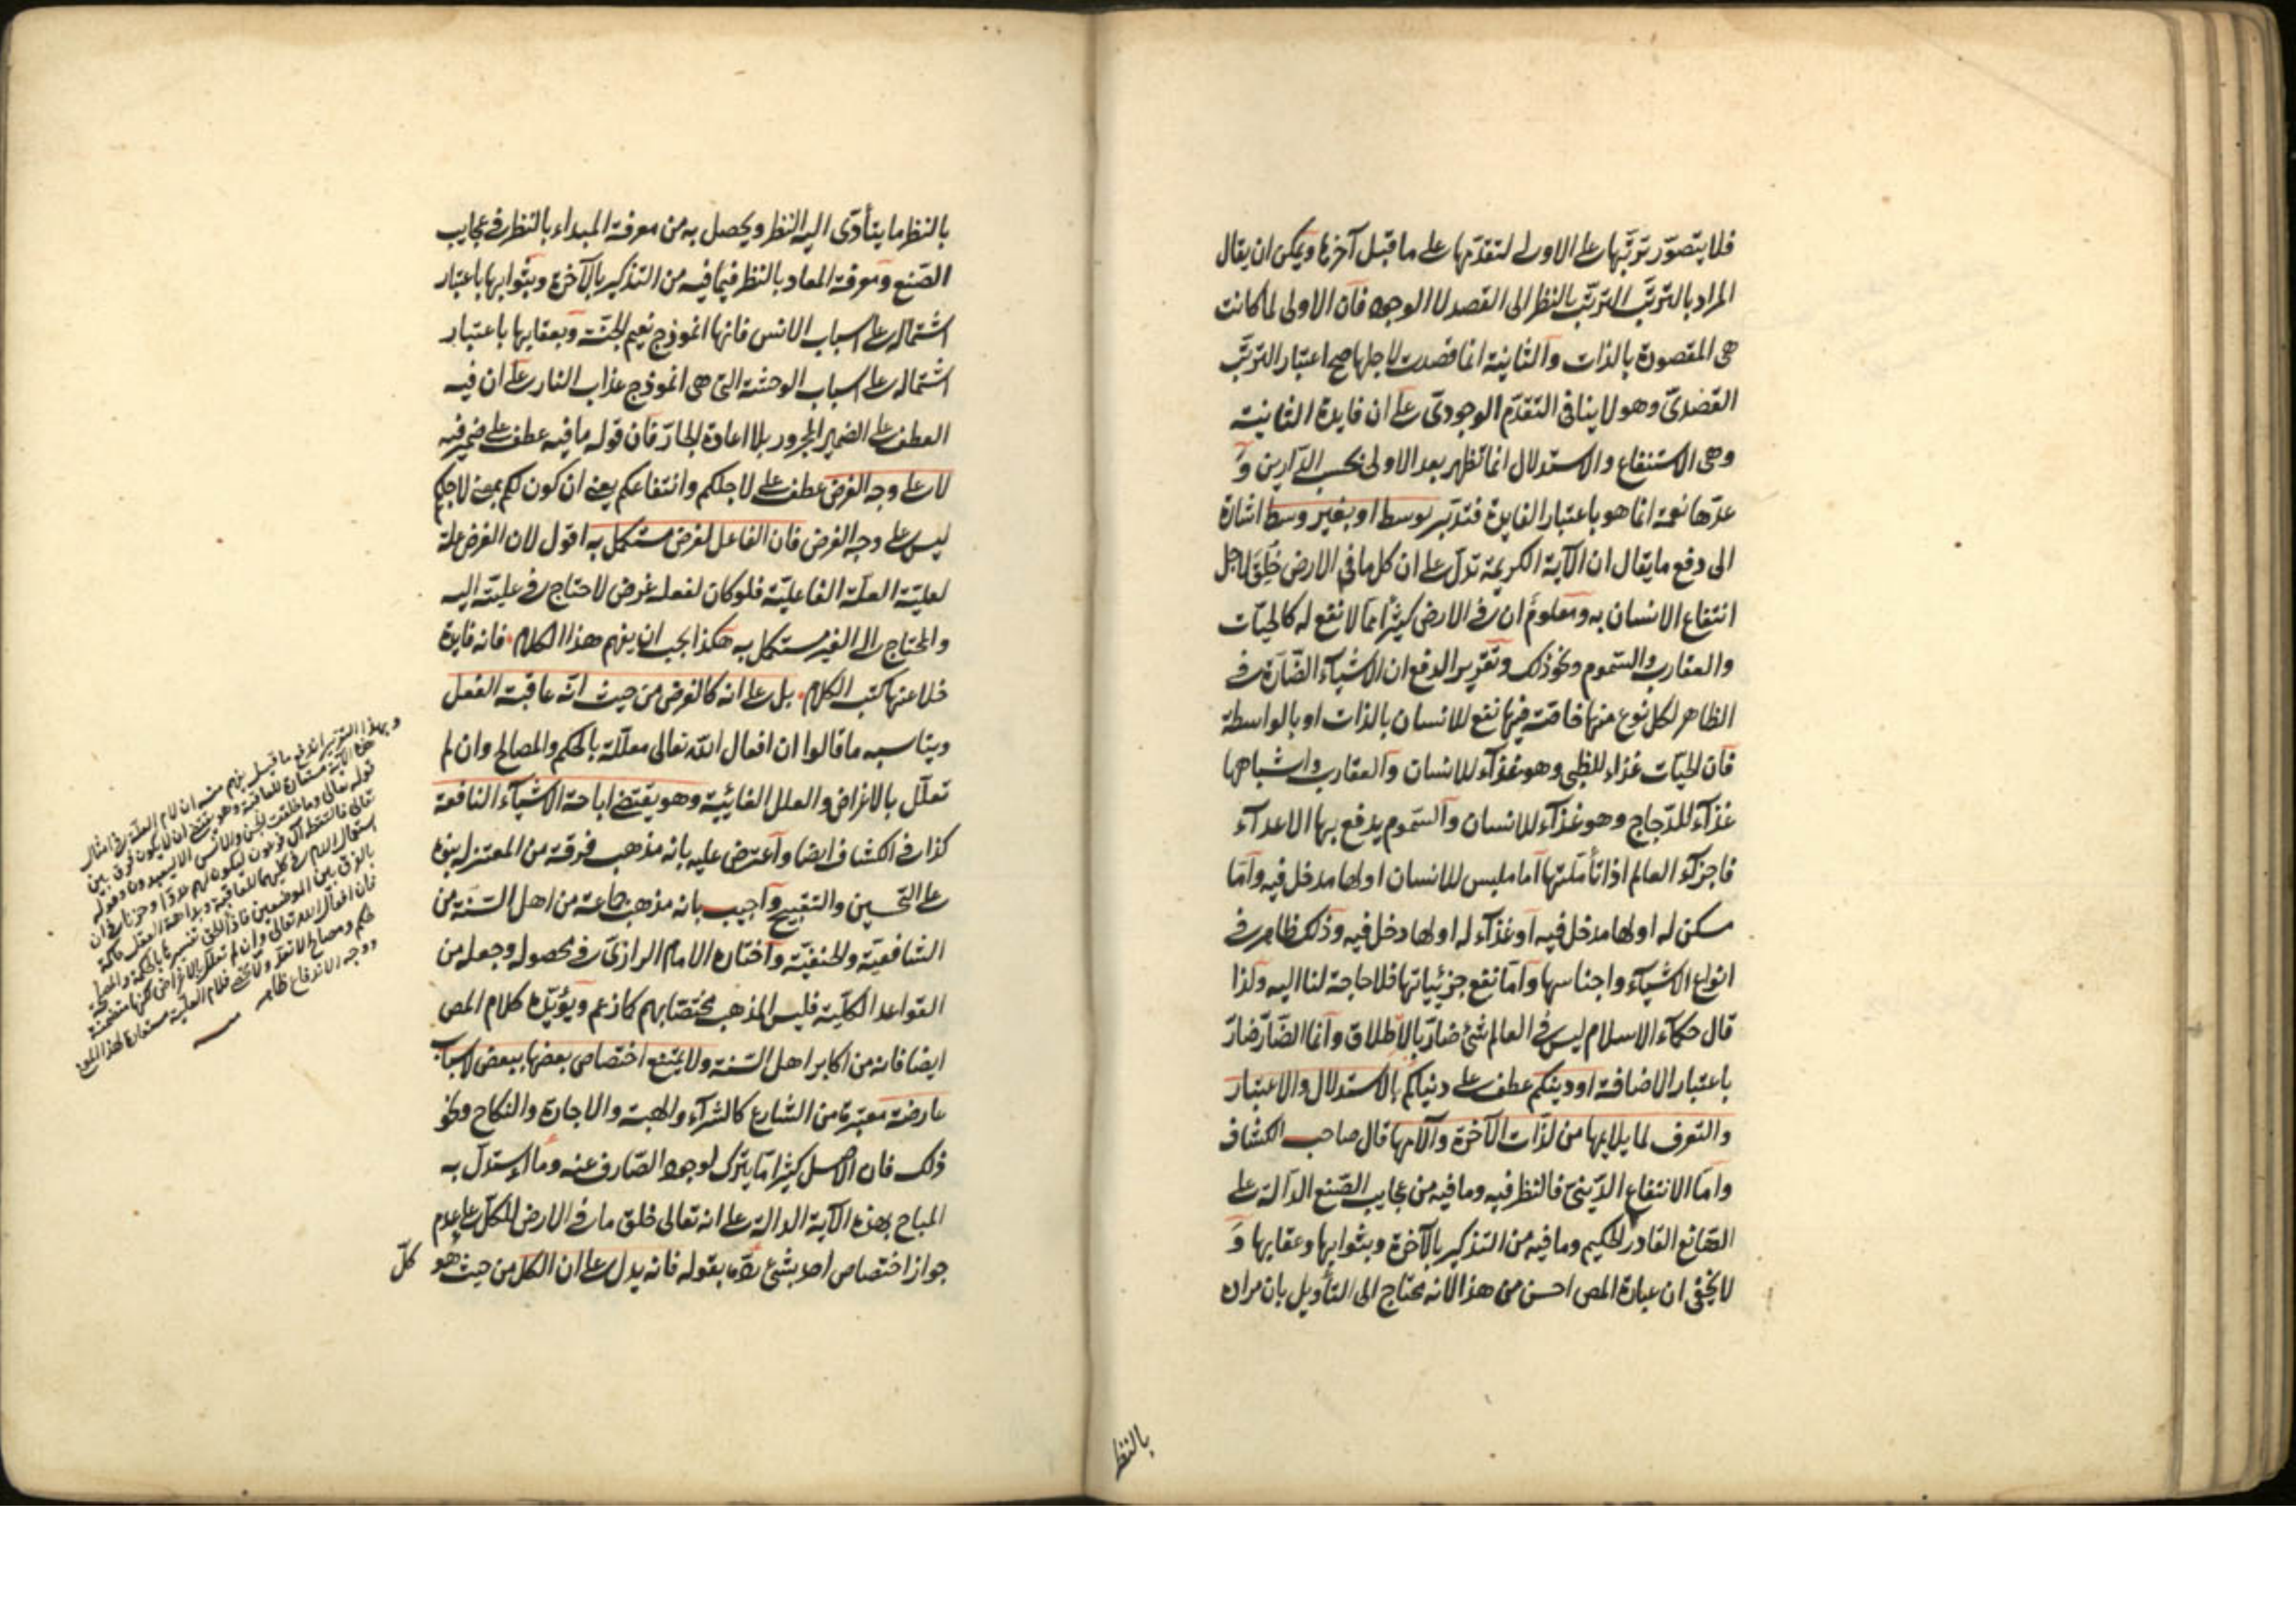 فلا يتصوّر ترتّبها على الاولى لتقدّمها على ما قبل آخرها ويمكن ان يقال
المراد بالترتّب الترتّب بالنظر الى القصد لا الوجود فان الاولى لما كانت
هى المقصودة بالذات والثانية انما قصدت لاجلها صح اعتبار الترتّب
القصدىّ وهو لا ينافى التقدّم الوجودىّ على ان فايدة الثانية
وهى الاستنفاع والاستدلال انما تظهر بعد الاولى بحسب الدارين و
عدّها نعمة انما هو باعتبار الفايدة فتدبّر بوسط او بغير وسط اشارة
الى دفع ما يقال ان الآية الكريمة تدلّ على ان كل ما فى الارض خُلِقَ لاجل
انتفاع الانسان به ومعلوم ان فى الارض كثيرًا مما لا نفع له كالحيّات
والعقارب والسّموم ونحو ذلك وتقرير الدفع ان الاشيآء الضّارّة فى
الظاهر لكل نوع منها خاصّة فيها نفع للانسان بالذات او بالواسطة
فان الحيّات غذاء للظبى وهو غذآء للانسان والعقارب واشباهها
غذآء للدّجاج وهو غذآء للانسان والسّموم يدفع بها الاعدآء
فاجزآء العالم اذا تأمّلتها اما ملبس للانسان او لها مدخل فيه وامّا
مسكن له او لها مدخل فيه او غذآء له او لها دخل فيه وذلك ظاهر فى
انواع الاشيآء واجناسها وامّا نفع جزئياتها فلا حاجة لنا اليه ولذا
قال حكمآء الاسلام ليس فى العالم شئ ضارّ بالاطلاق وانما الضّارّ ضارّ
باعتبار الاضافة او دينكم عطف على دنياكم بالاستدلال والاعتبار
والتعرف لما يلايمها من لذّات الآخرة وآلامها قال صاحب الكشاف
وامّا الانتفاع الدّينىّ فالنظر فيه وما فيه من عجايب الصّنع الدآلة على
الصّانع القادر الحكيم وما فيه من التذكير بالآخرة وبثوابها وعقابها وَ
لا يخفى ان عبارة المص احسن من هذا لانه محتاج الى التأويل بان مراده
بالنظر
بالنظر ما يتأدّى اليه النظر ويحصل به من معرفة المبداء بالنظر فى عجايب
الصّنع ومعرفة المعاد بالنظر فيما فيه من التذكير بالآخرة وبثوابها باعتبار
اشتماله على اسباب الانس فانها انموذج نعيم الجنّة وبعقابها باعتبار
اشتماله على اسباب الوحشة التى هى انموذج عذاب النار على ان فيه
العطف على الضمير المجرور بلا اعادة الجارّ فان قوله ما فيه عطف على ضمير فيه
لا على وجه الغرض عطف على لاجلكم وانتفاعكم يعنى ان كون لكم بمعنى لاجلكم
ليس على وجه الغرض فان الفاعل لغرض مستكمل به اقول لان الغرض علة
لعليّة العلّة الفاعليّة فلو كان لفعله غرض لاحتاج فى عليّته اليه
والمحتاج الى الغير مستكمل به هكذا يجب ان يفهم هذا الكلام فانه فايدة
خلا عنها كتب الكلام بل على انه كالغرض من حيث انّه عاقبة الفعل
ويناسبه ما قالوا ان افعال اللّه تعالى معلّلة بالحكم والمصالح وان لم
تعلّل بالاغراض والعلل الغائيّية وهو يقتضى اباحة الاشيآء النافعة
كذا فى الكشاف ايضا واعترض عليه بانه مذهب فرقة من المعتزلة بنوه
على التحسين والتقبيح واجيب بانه مذهب جماعة من اهل السّنّة من
الشافعيّة والحنفيّة واختاره الامام الرازىّ فى محصوله وجعله من
القواعد الكلّية فليس المذهب مختصّا بهم كما زعم ويؤيّده كلام المص
ايضا فانه من اكابر اهل السّنة ولا يمنع اختصاص بعضها ببعض لاسباب
عارضة معتبرة من الشارع كالشرآء والهبة والاجارة والنكاح ونحو
ذلك فان الاصل كثيرا ما يترك لوجود الصّارف عنه وما استدلّ به
المباح بهذه الآية الدالة على انه تعالى خلق ما فى الارض للكلّ على عدم
جواز اختصاص احد بشئ ردّه بقوله فانه يدل على ان الكل من حيث هو
كلّ
وبهذا التقرير اندفع ما قيل يفهم منه ان لام العلّة فى امثال
هذه الآية مستعارة للعاقبة وهو يقتضى ان لا يكون فرق بين
قوله تعالى وما خلقت الجن والانس الا ليعبدون وقوله
تعالى فالتقطه آل فرعون ليكون لهم عدوّا وحزنا فى ان
استعمال اللام فى كليهما للعاقبة وبداهة العقل حاكمة
بالفرق بين الموضعين
فان افعال اللّه تعالى وان لم تعلّل بالاغراض لكنها متضمّنة
لحكم ومصالح
ووجه الاندفاع ظاهر